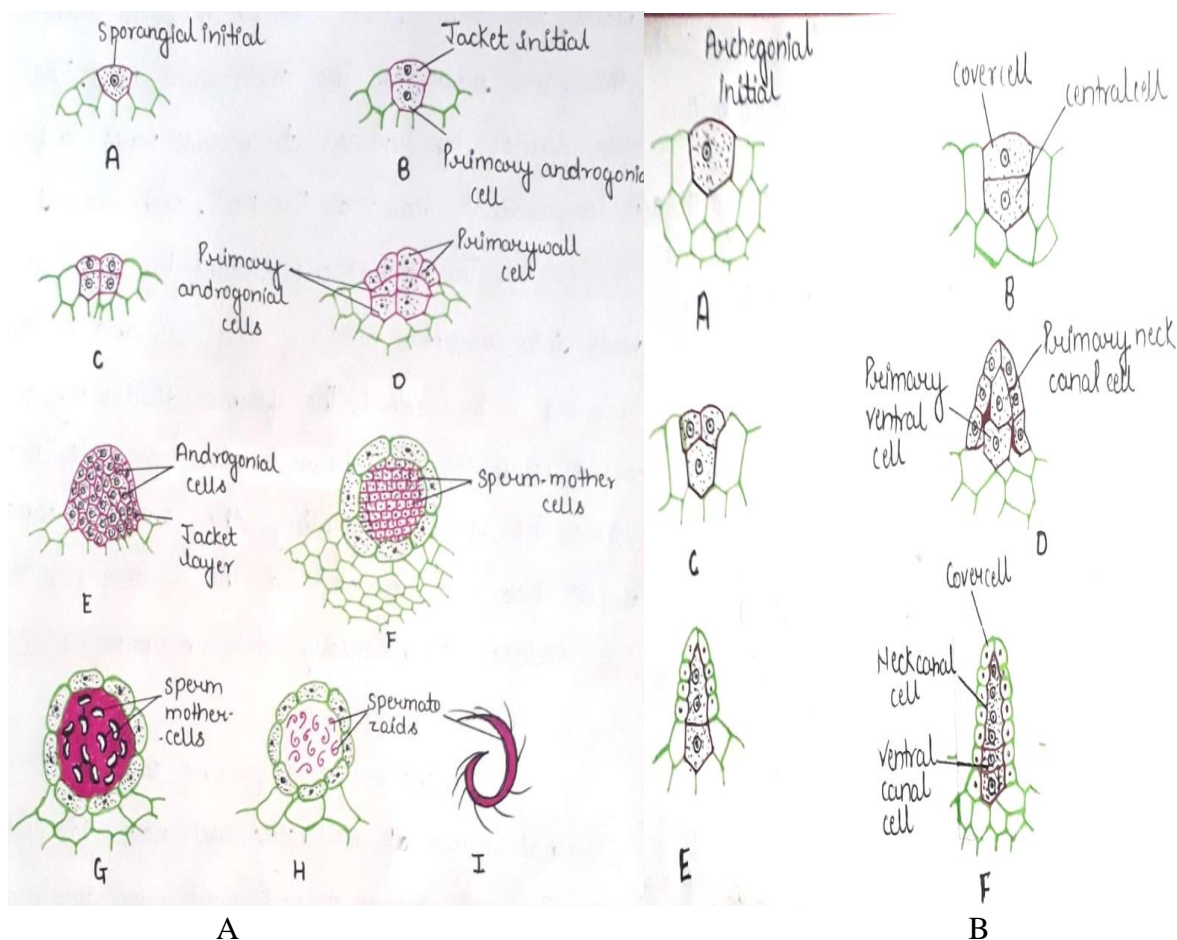 Sporangial initial
A
Jacket initial
Primary androgonic
cell
B
C
Primary
androgonial
cells
Primary wall
cell
D
Androgonial
cells
Jacket
layer
E
Sperm-mother
cells
F
Sperm
mother-
-cells
G
Spermato
zoids
H
I
A
Archegonial
initial
A
Cover cell
central cell
B
C
Primary
ventral
cell
Primary neck
canal cell
D
E
Cover cell
Neck canal
cell
Ventral
canal
cell
F
B